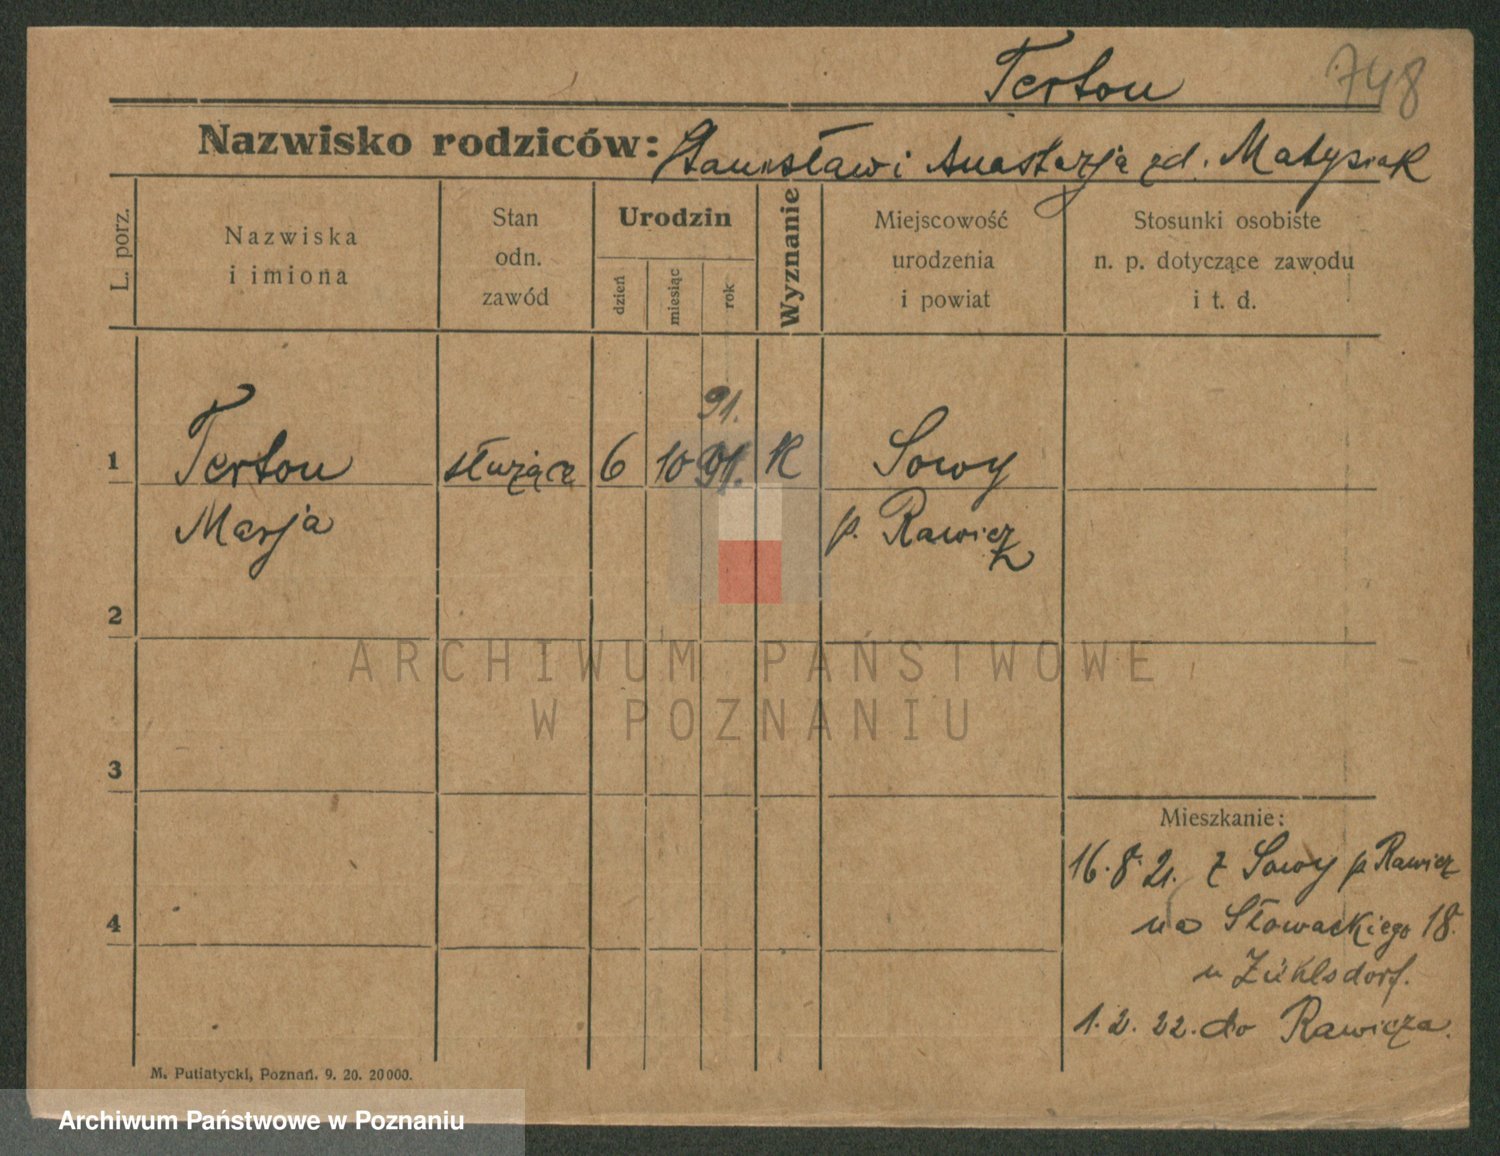 Terton 748
Nazwisko rodziców: Stanisław i Anastazja zd. Matysiak
L. porz.
Nazwiska
i imiona
Stan
odn.
zawód
Urodzin
dzień
miesiąc
rok
Wyznanie
Miejscowość
urodzenia
i powiat
Stosunki osobiste
n. p. dotyczące zawodu
i t. d.
91.
1 Terton służące 6 10 91. K Sowy
Marja p. Rawicz
2
3
4
Mieszkanie:
16.8.21. z Sowy p Rawicz
na Słowackiego 18.
u Zühlsdorf.
1.2.22. do Rawicza.
M. Putiatycki, Poznań. 9. 20. 20000.
ARCHIWUM PAŃSTWOWE
W POZNANIU
Archiwum Państwowe w Poznaniu